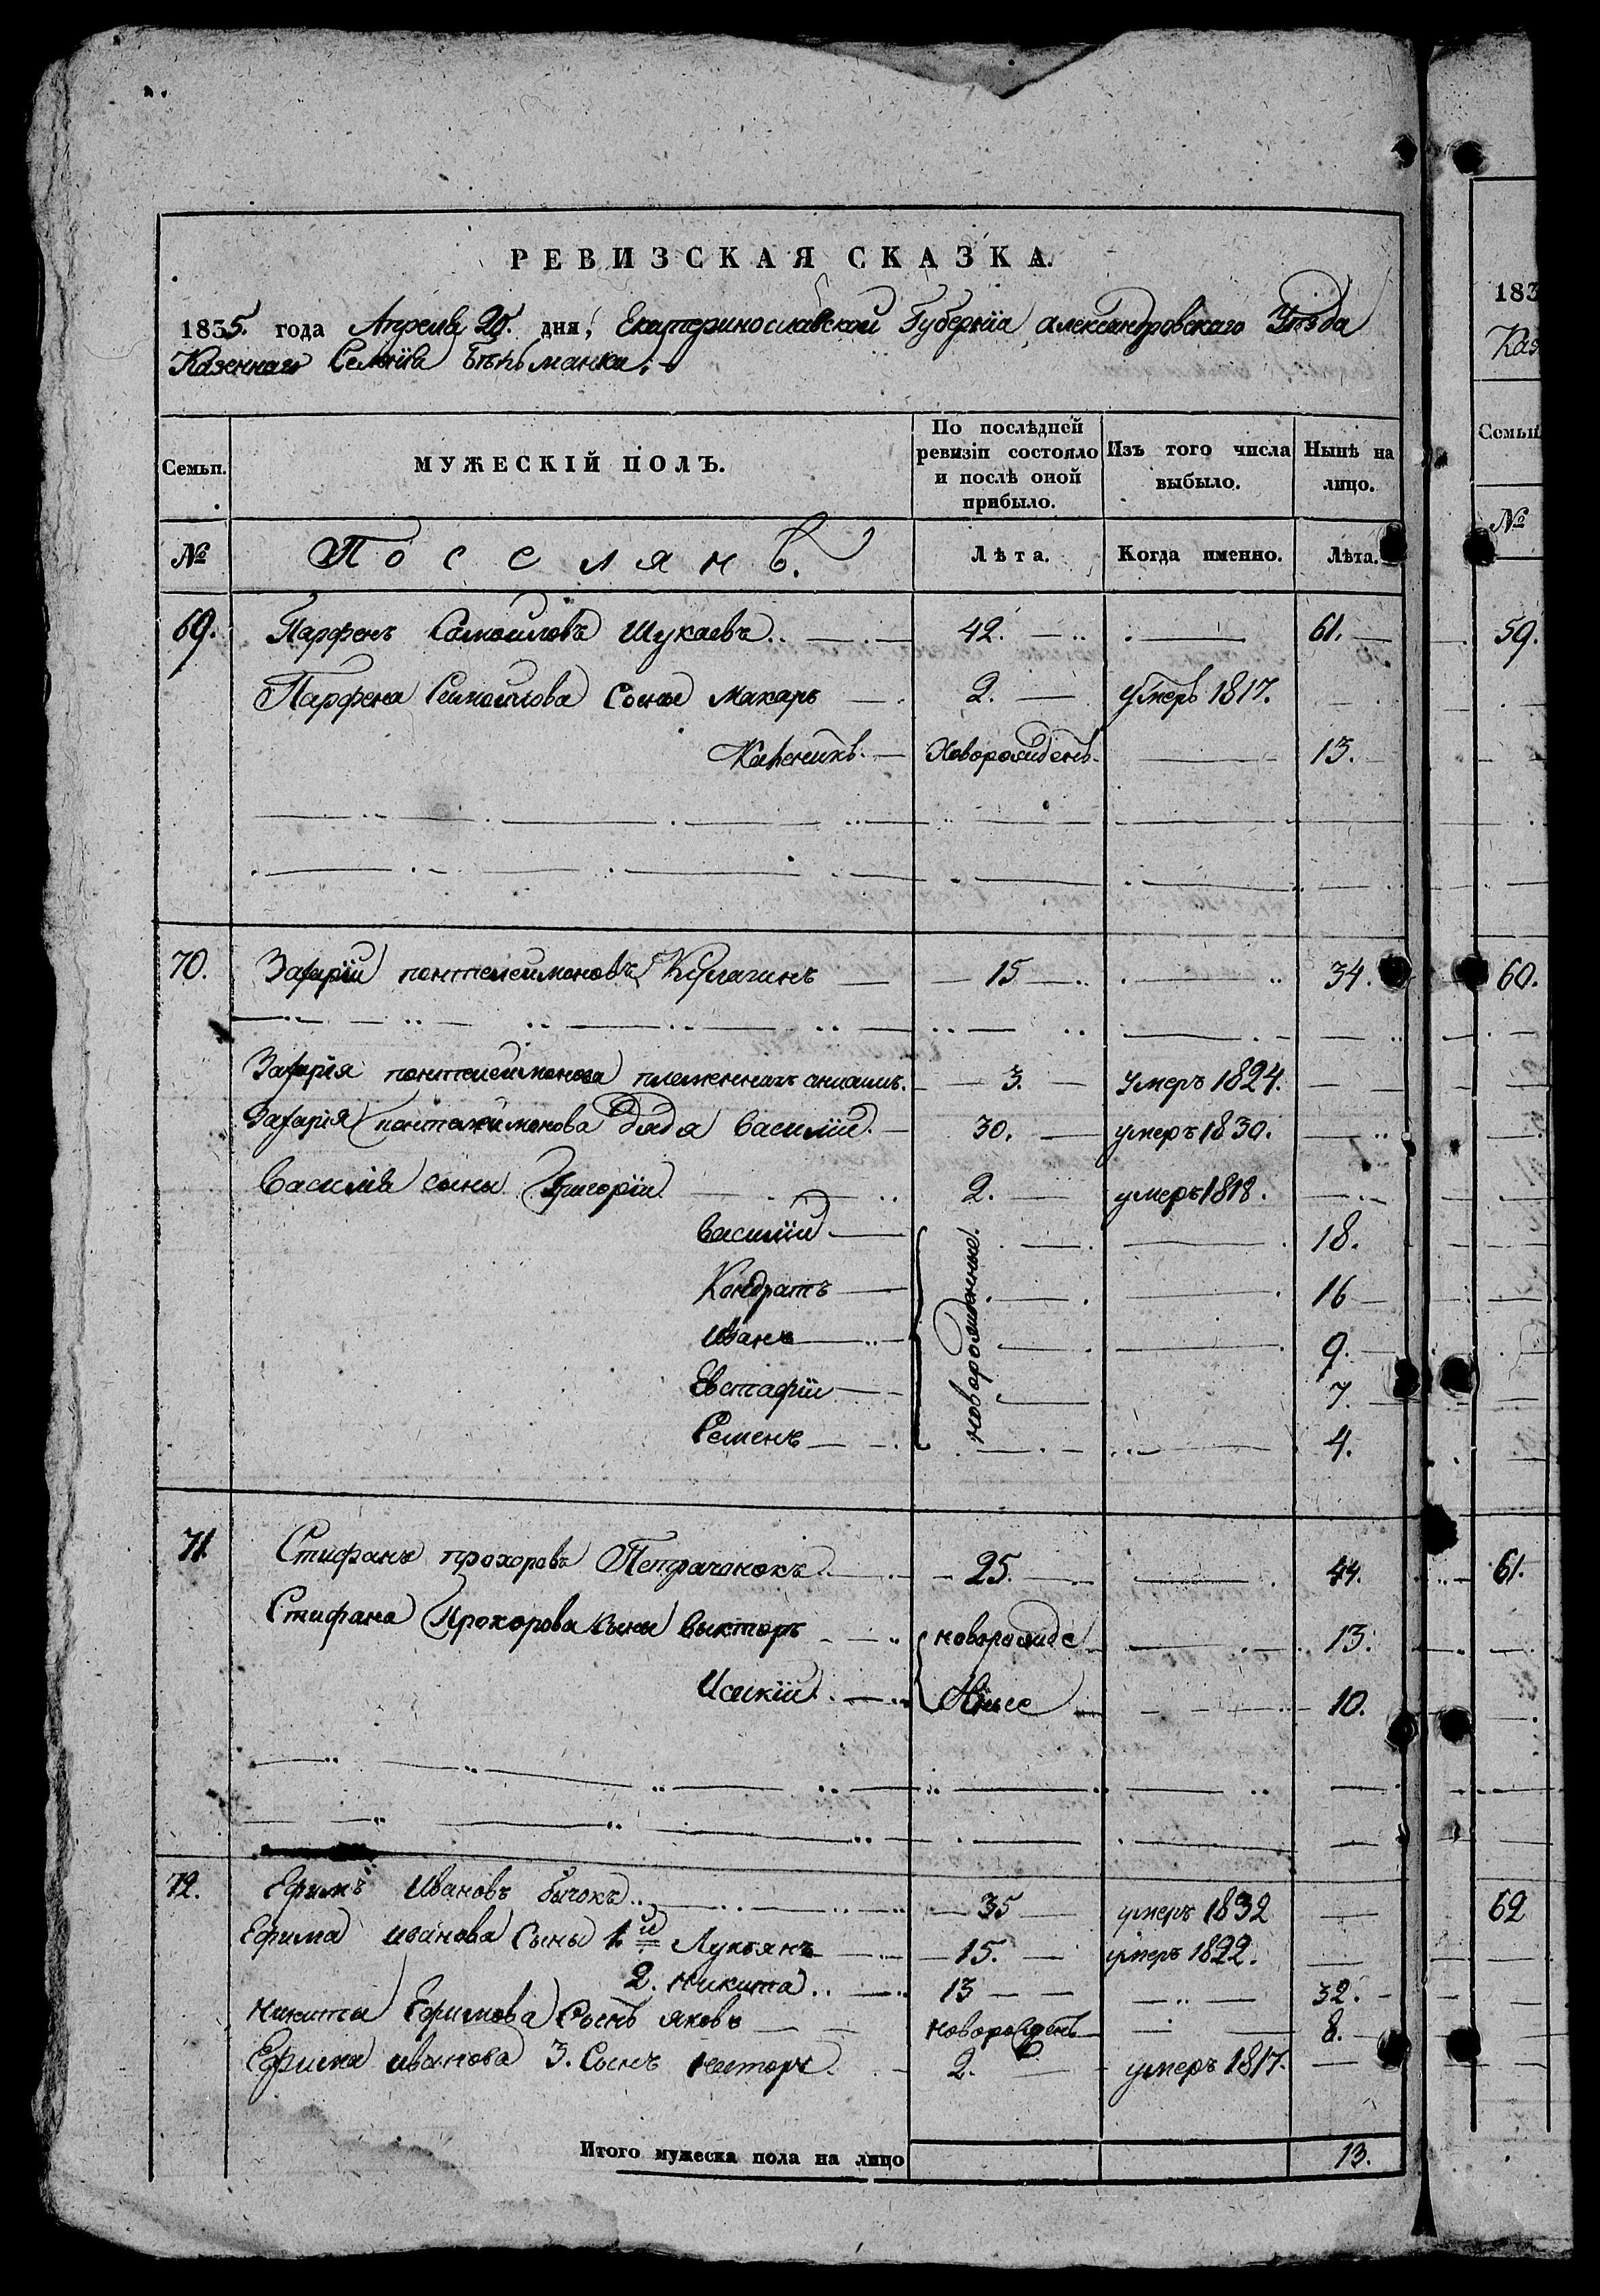 РЕВИЗСКАЯ СКАЗКА.
1835. года Апреля 20. дня, Екатеринославской Губернїи, александровскаго Уѣзда
Казеннаго Селенїя Бѣльманки.
Семьи. МУЖЕСКІЙ ПОЛЪ. По послѣдней ревизіи состояло и послѣ оной прибыло. Изъ того числа выбыло. Нынѣ на лицо.
№ Поселянъ. Лѣта. Когда именно. Лѣта.
69. Парфенъ Самойловъ Шукаевъ 42. 61.
Парфена Самойлова Сыны Макаръ 2. умеръ 1817.
Новорожденъ 13.
70. Захарїй понтелеймоновъ Кулагинъ 15 34.
Захарїя понтелеймонова племенникъ 3. умеръ 1824.
Захарїя понтелеймонова дядя василїй 30. умеръ 1830.
василїя сыны Григорїй 2. умеръ 1818.
василїй 18.
Кондратъ 16
Иванъ 9.
Евстафїй 7.
Семенъ 4.
новорожденные.
71. Стифанъ прохоровъ Петрачонокъ 25. 44.
Стифана Прохорова сыны викторъ новорожде 13.
10.
72. Ефимъ Ивановъ бычокъ 35 умеръ 1832
Ефима иванова Сыны 1й Лукьянъ 15. умеръ 1822.
2. Никита 13 32.
Никиты Ефимова Сынъ яковъ новорожденъ 8.
Ефима иванова 3. Сынъ нестора 2. умеръ 1817.
Итого мужеска пола на лицо 13.
183
Каз
Семьи
№
59.
60.
61.
62